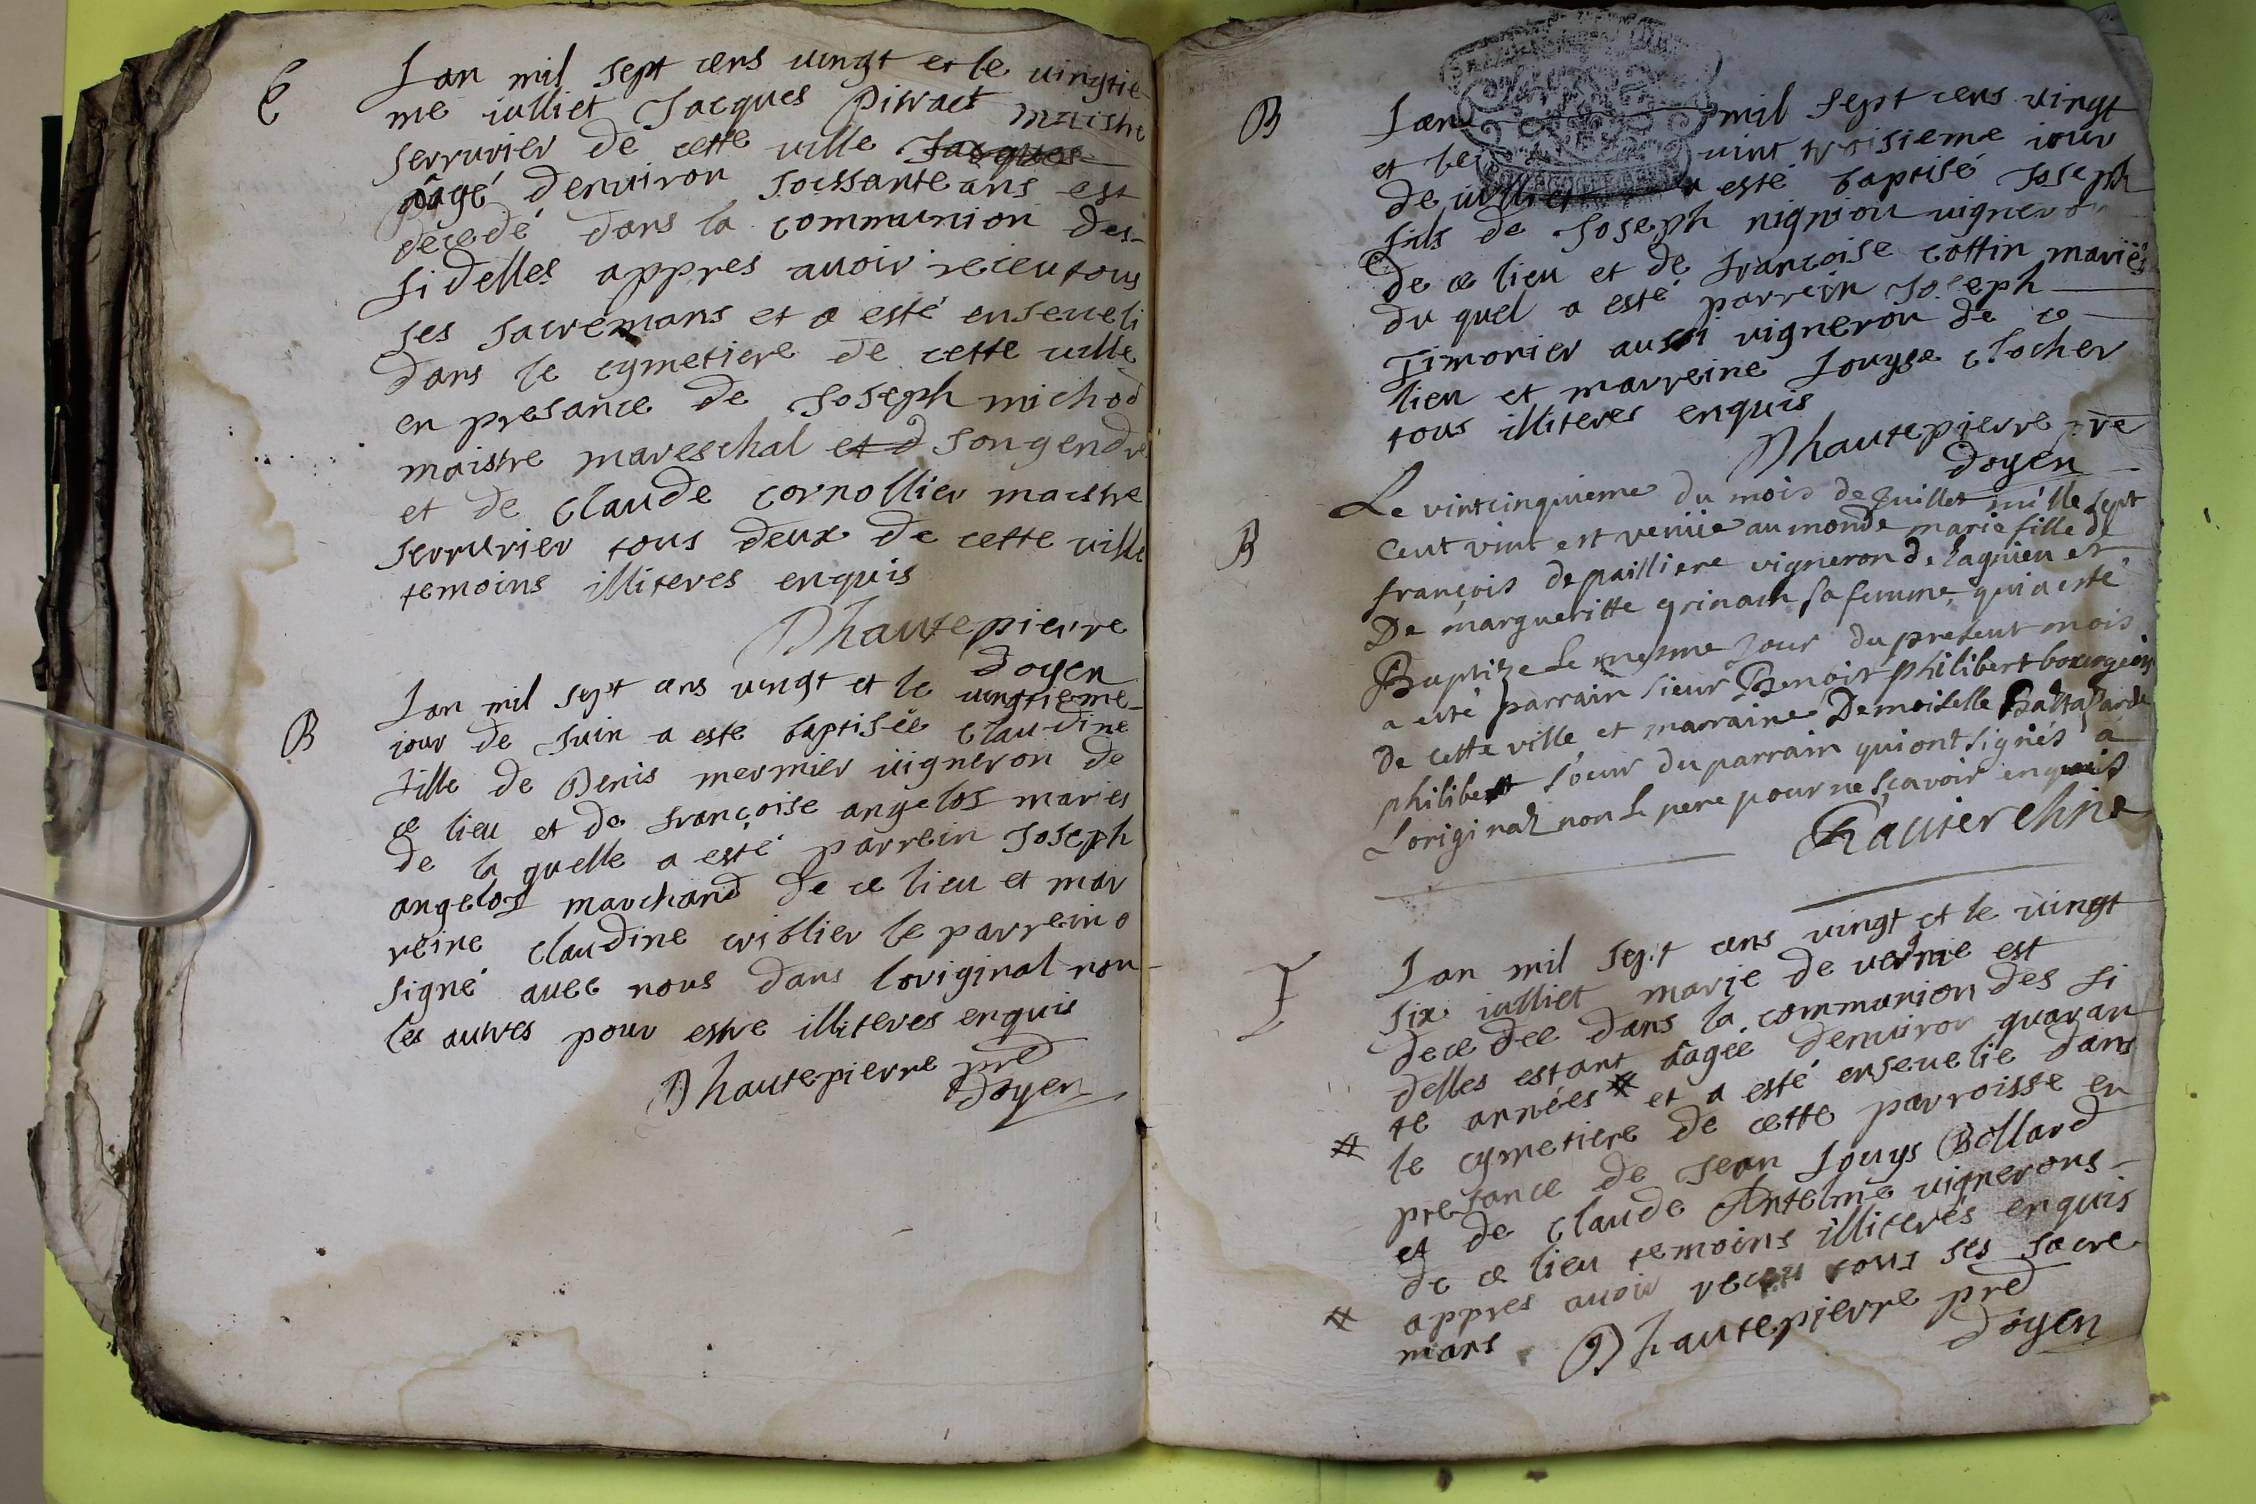 E
Lan mil sept cens vingt et le vingtie
me iulliet Jacques Pivraet maistre
serrurier de cette ville Jacques
âagé denuiron soissante ans est
décedé dans la communion des
fidelles appres auoir receu tous
ses sacremans et a esté enseueli
dans le cymetiere de cette ville
en presance de Joseph michod
maistre mareschal et d son gendre
et de Claude cornollier maistre
serrurier tous deux de cette ville
temoins illiteres enquis
Dhautepierre
doyen
B
Lan mil sept cens vingt et le vingtieme
iour de Juin a este baptisée Claudine
fille de Denis mermier uigneron de
ce lieu et de françoise angelot maries
de la quelle a esté parrein Joseph
angelot marchand de ce lieu et mar
reine Claudine criblier le parrein a
signé auec nous dans loriginal non
les autres pour estre illiteres enquis
Dhautepierre pre
doyen
B
Lan mil sept cens vingt
et le vint troisieme iour
de iulliet a esté baptisé Joseph
fils de Joseph nigniou uigneron
de ce lieu et de françoise cottin mariés
du quel a esté parrein Joseph
Timonier aussi vigneron de ce
lieu et marreine Louyse Clocher
tous illiteres enquis
Dhautepierre pre
doyen
B
Le vintcinquieme du mois de Juillet mille sept
Cent vint est venüe au monde marie fille de
françois depailliere vigneron de lagnieu et
De margueritte grinain sa femme, qui a esté
Baptize Le mesme Jour du present mois
a esté parrain sieur Benoit philibert bourgeois
De cette ville et marraine Demoiselle Baltazarde
philibert soeur du parrain qui ont signés a
Loriginal non L pere pour ne scavoir enquis
Lan mil sept cens vingt et le vingt
six iulliet marie de vernie est
decedee dans la communion des fi
delles estant âagée denuiron quaran
te années # et a esté enseuelie dans
# le cymetiere de cette parroisse en
presance de Jean Louys Bollard
et de Claude Antelme uignerons
de ce lieu temoins illiterés enquis
# appres auoir receu tous ses sacre
mans Dhautepierre pre
doyen